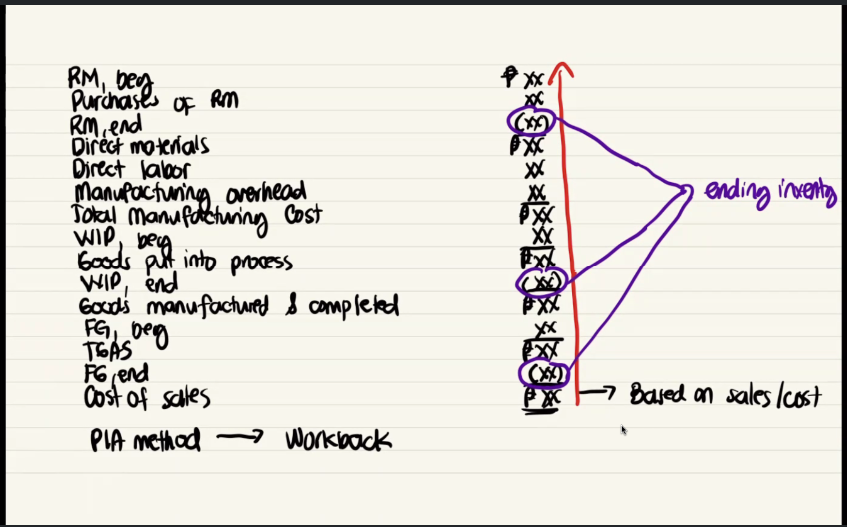 RM, beg ₱ xx
Purchases of RM xx
RM, end (xx)
Direct materials ₱ xx
Direct labor xx
Manufacturing overhead xx
Total Manufacturing Cost ₱ xx
WIP, beg xx
Goods put into process ₱ xx
WIP, end (xx)
Goods manufactured & completed ₱ xx
FG, beg xx
TGAS ₱ xx
FG, end (xx)
Cost of sales ₱ xx → Based on sales/cost
ending inventory
PIA method → Workback